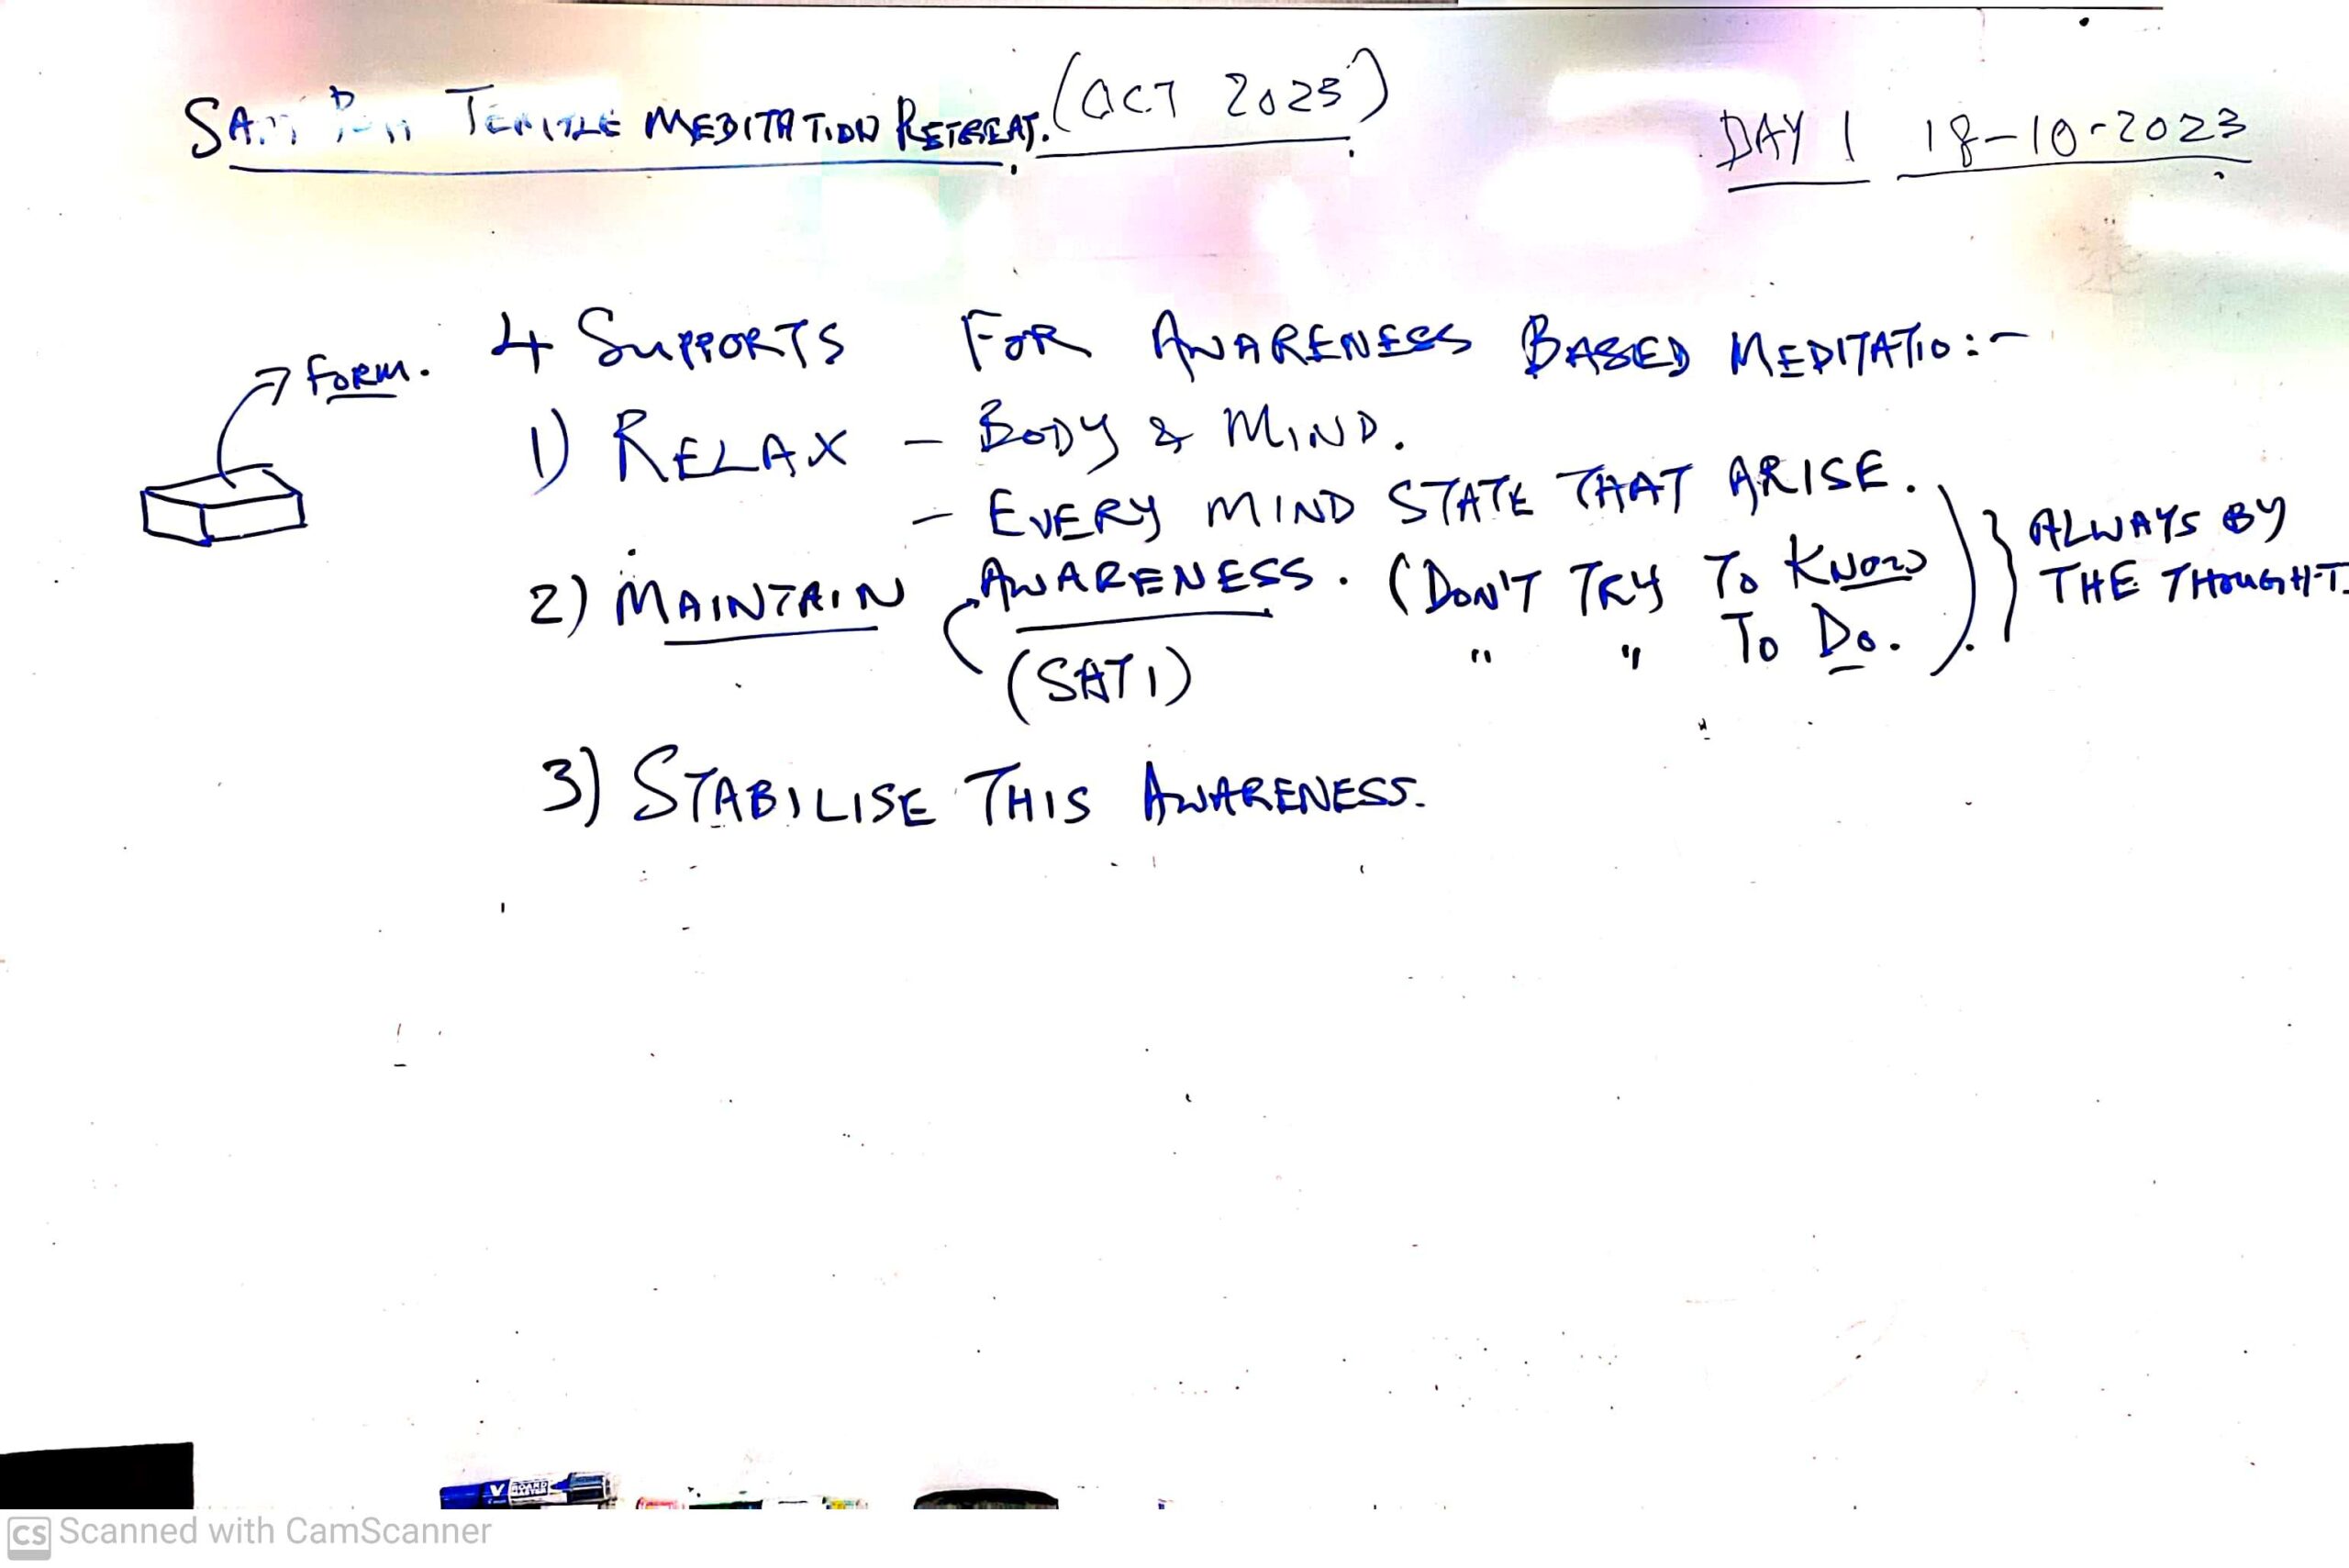 TEMPLE MEDITATION RETREAT. (OCT 2023)
DAY 1 18-10-2023
4 SUPPORTS FOR AWARENESS BASED MEDITATIO:-
FORM.
1) RELAX - BODY & MIND.
- EVERY MIND STATE THAT ARISE.
2) MAINTAIN AWARENESS. (DON'T TRY TO KNOW
" " TO DO.)
} ALWAYS BY
THE THOUGHT.
(SATI)
3) STABILISE THIS AWARENESS.
V BOARD MASTER
CS Scanned with CamScanner